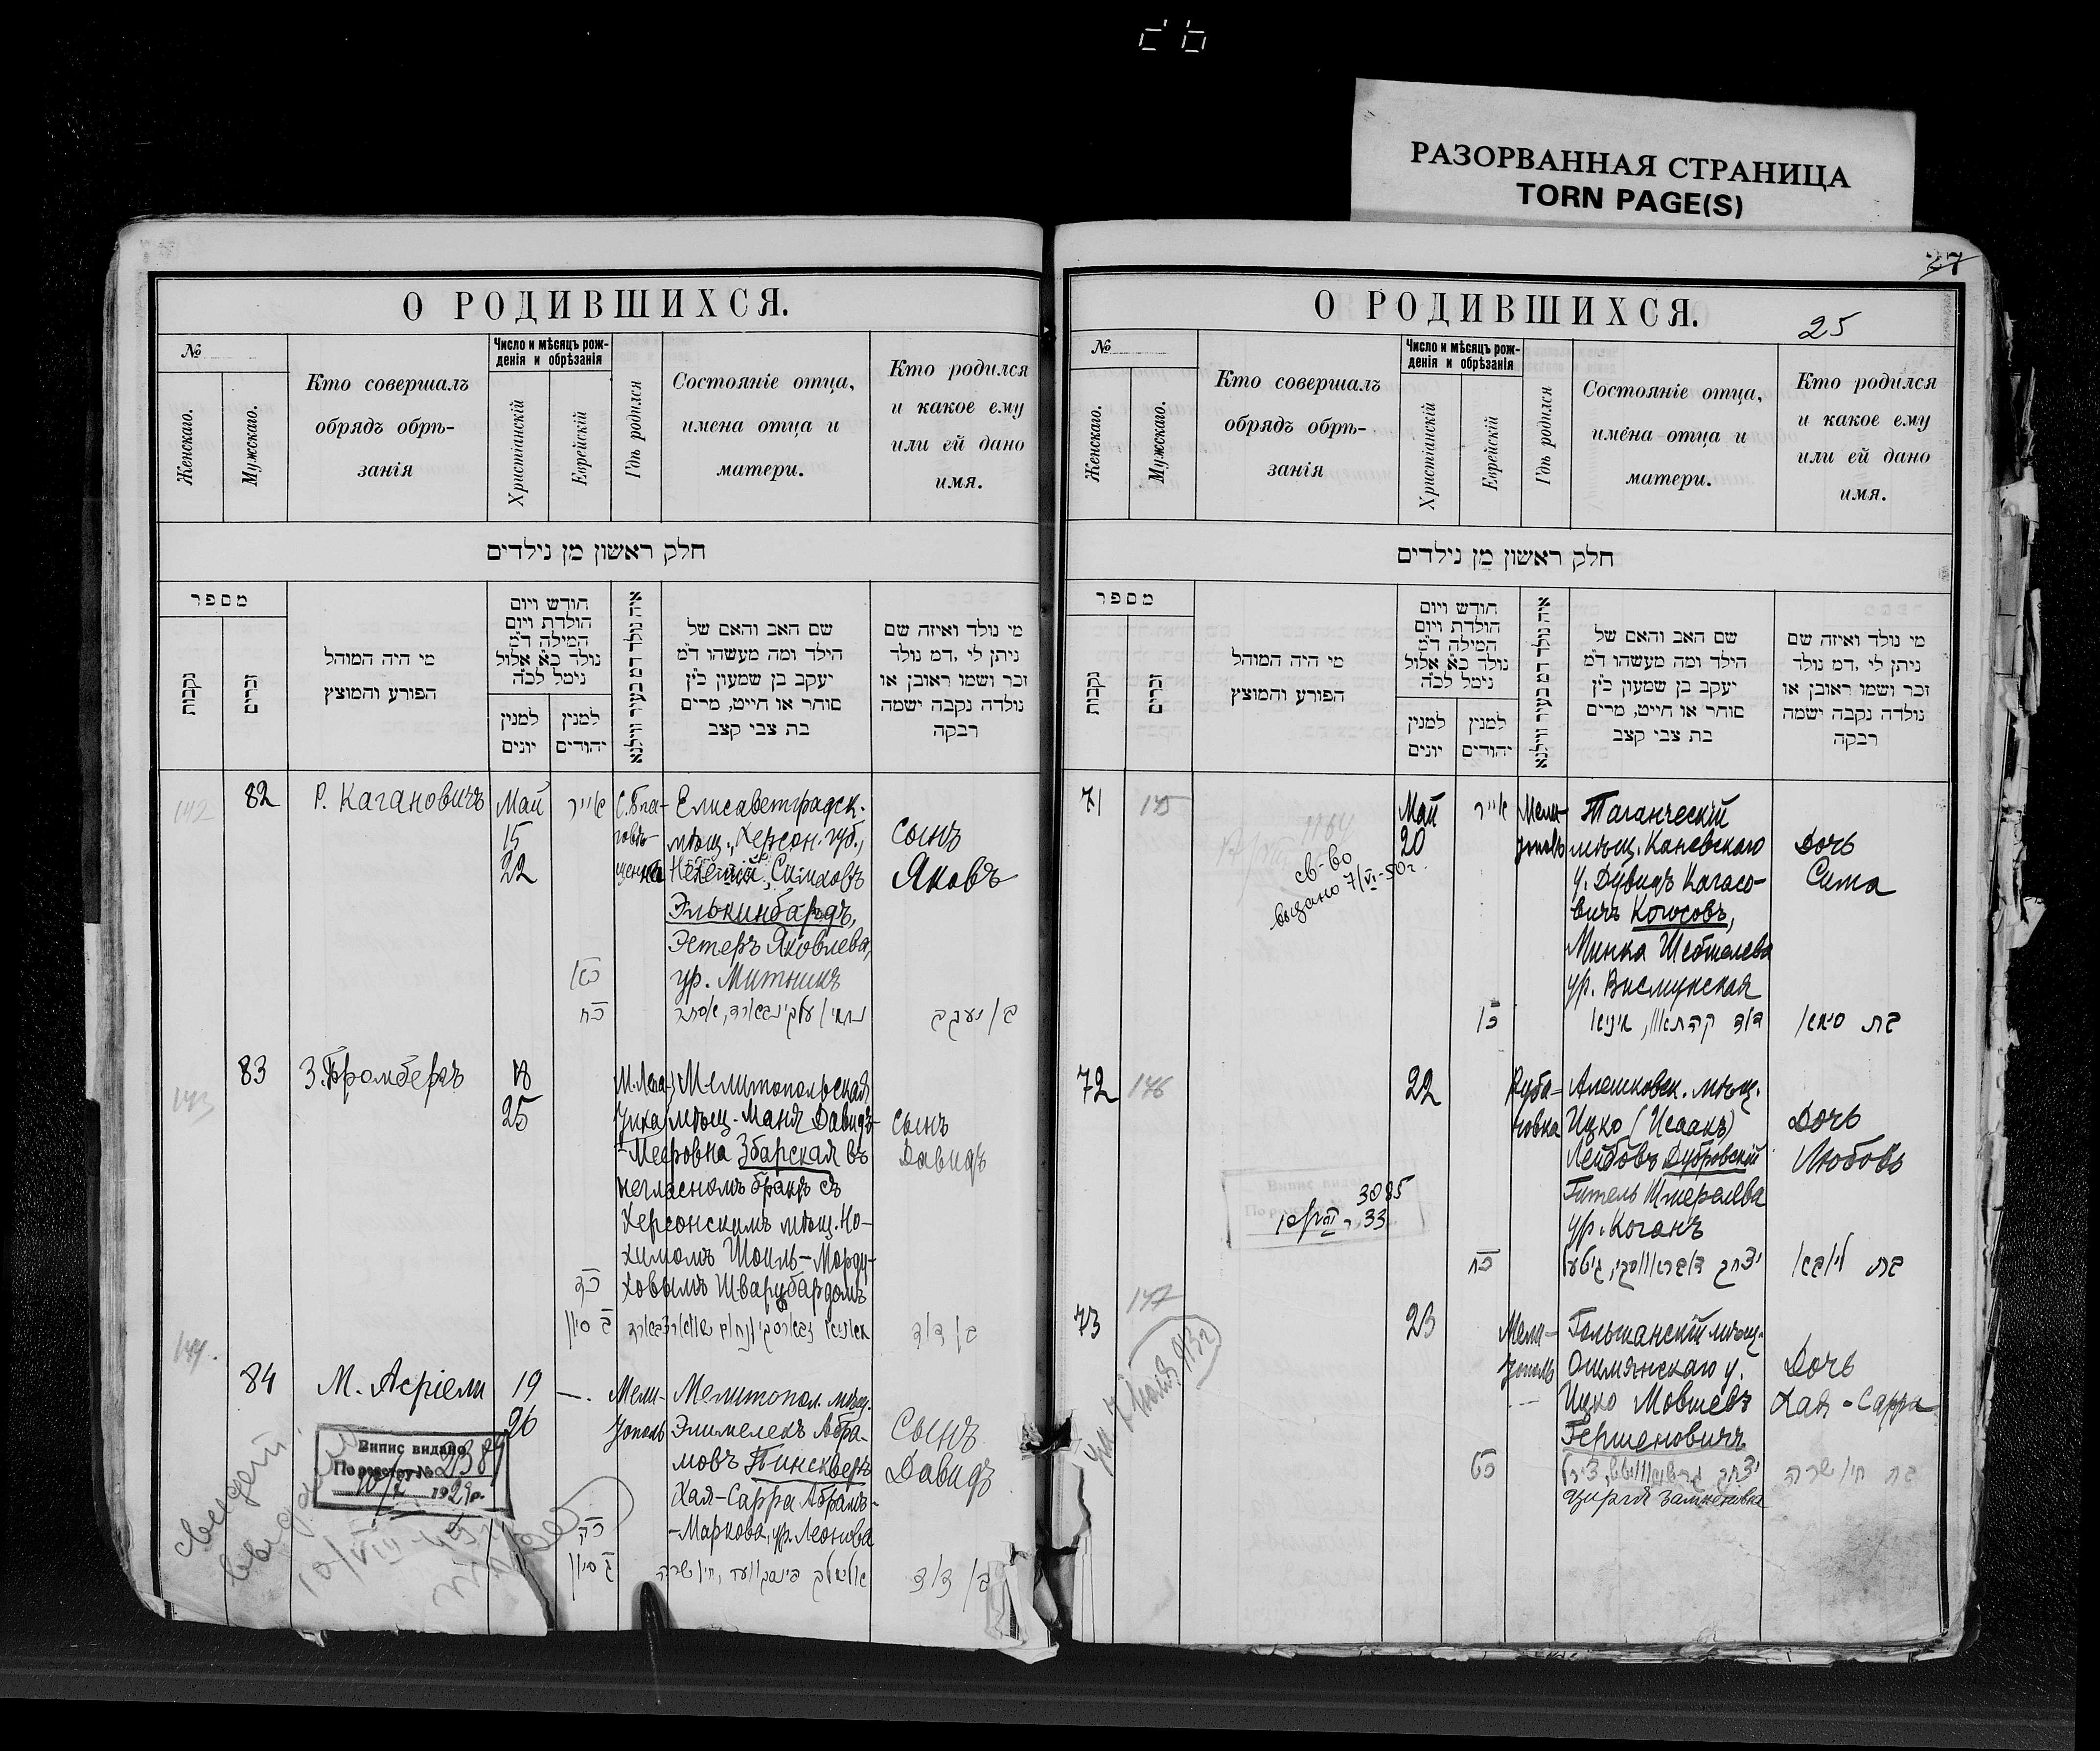 РАЗОРВАННАЯ СТРАНИЦА
TORN PAGE(S)
О РОДИВШИХСЯ.
№
Женскаго.
Мужскаго.
Кто совершалъ
обрядъ обрѣ-
занія
Число и мѣсяцъ рож-
денія и обрѣзанія
Христіанскій
Еврейскій
Гдѣ родился
Состояніе отца,
имена отца и
матери.
Кто родился
и какое ему
или ей дано
имя.
חלק ראשון מן נילדים
מספר
נקבות
זכרים
מי היה המוהל
הפורע והמוצץ
חודש ויום
הולדת ויום
המילה ד״מ
נולד כא אלול
נימל לכ״ה
למנין
יונים
למנין
יהודים
איה נולד דמ בעיר ווילנא
שם האב והאם של
הילד ומה מעשהו ד״מ
יעקב בן שמעון כ״ץ
סוחר או חייט, מרים
בת צבי קצב
מי נולד ואיזה שם
ניתן לי ,דמ נולד
זכר ושמו ראובן או
נולדה נקבה ישמה
רבקה
142
82
Р. Кагановичъ
Май
15
22
אייר
С. Бла-
говѣ-
щенка
Елисаветградск.
мѣщ., Херсон. губ.,
Симховъ
Элькинбардъ,
Эстеръ Яковлева,
ур. Митникъ
сынъ
Яковъ
כח
בן יעקב
143
83
З. Бромбергъ
18
25
Мелитопольская
мѣщ. Маня Давидъ-
-Мееровна Збарская въ
негласномъ бракѣ съ
Херсонскимъ мѣщ. Но-
химомъ Шоилъ-Морду-
ховымъ Шварцбардомъ
сынъ
Давидъ
ב סיון
בן דוד
144.
84
М. Асріели
19
26
Мели-
тополь
Мелитопол. мѣщ.
Элимелехъ Абра-
мовъ Пинскверъ
Хая-Сарра Абрамъ-
-Маркова, ур. Леонова
Сынъ
Давидъ
ג סיון
בן דוד
Випис видано
По реестру № 2389
1929 р.
27
25
О РОДИВШИХСЯ.
№
Женскаго.
Мужскаго.
Кто совершалъ
обрядъ обрѣ-
занія
Число и мѣсяцъ рож-
денія и обрѣзанія
Христіанскій
Еврейскій
Гдѣ родился
Состояніе отца,
имена отца и
матери.
Кто родился
и какое ему
или ей дано
имя.
חלק ראשון מן נילדים
מספר
נקבות
זכרים
מי היה המוהל
הפורע והמוצץ
חודש ויום
הולדת ויום
המילה ד״מ
נולד כא אלול
נימל לכ״ה
למנין
יונים
למנין
יהודים
איה נולד דמ בעיר ווילנא
שם האב והאם של
הילד ומה מעשהו ד״מ
יעקב בן שמעון כ״ץ
סוחר או חייט, מרים
בת צבי קצב
מי נולד ואיזה שם
ניתן לי ,דמ נולד
זכר ושמו ראובן או
נולדה נקבה ישמה
רבקה
71
145
св-во
выдано 7/VI-50г.
Май
20
אייר
Мели-
тополь
Таганческій
мѣщ. Каневскаго
у. Дувидъ Кагасо-
вичъ Когосовъ,
Минка Шебшелева
ур.
Дочь
Сима
72
146
3085
33
22
Руба-
новка
Алешковск. мѣщ.
Ицко (Исаакъ)
Лейбовъ Дубровскій
Гитель
ур. Коганъ
Дочь
Любовь
כח
147
73
23
Мели-
тополь
Гольшанскій мѣщ.
Ошмянскаго у.
Ицко Мовшевъ
Гершеновичъ
Дочь
Хая-Сарра
כט
בת חיו שרה